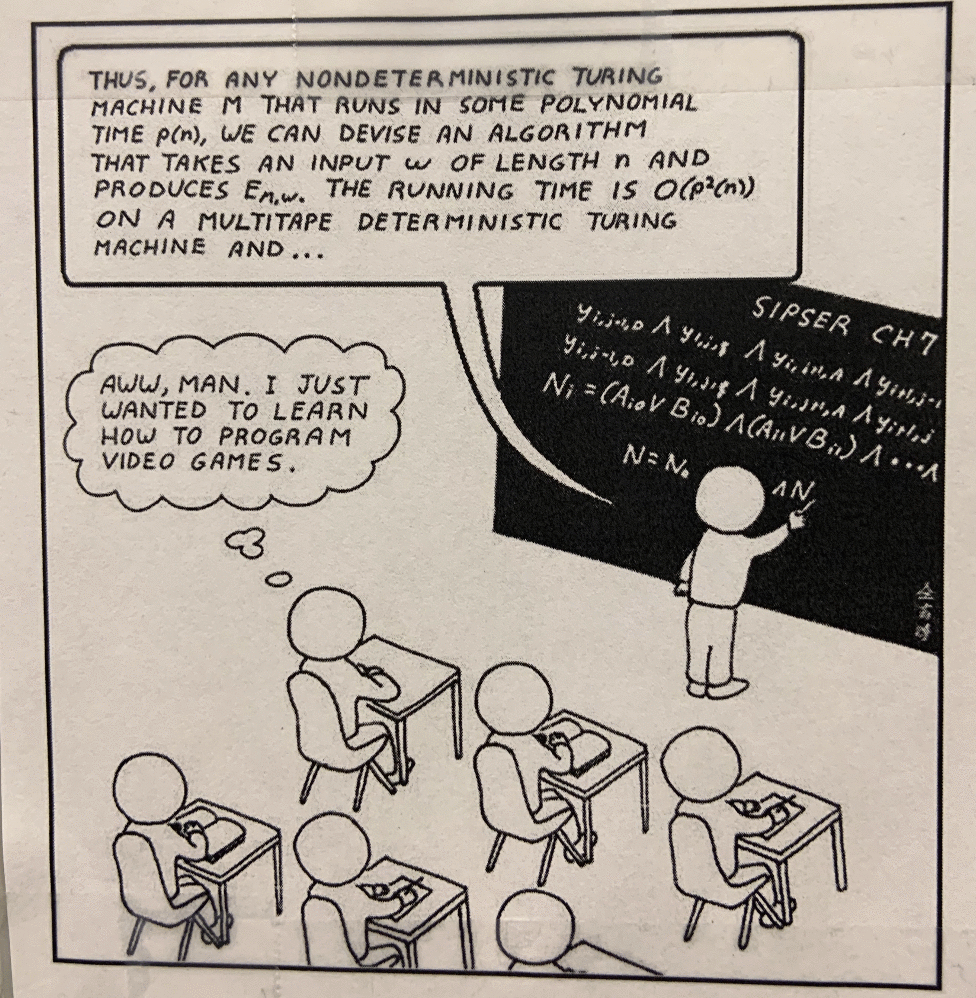 THUS, FOR ANY NONDETERMINISTIC TURING
MACHINE M THAT RUNS IN SOME POLYNOMIAL
TIME p(n), WE CAN DEVISE AN ALGORITHM
THAT TAKES AN INPUT ω OF LENGTH n AND
PRODUCES Eₙ,ω. THE RUNNING TIME IS O(p²(n))
ON A MULTITAPE DETERMINISTIC TURING
MACHINE AND...
SIPSER CH 7
Nᵢ = (Aᵢ₀ ∨ Bᵢ₀) ∧ (Aᵢ₁ ∨ Bᵢ₁) ∧ ... ∧
N = N₀ ∧ N
AWW, MAN. I JUST
WANTED TO LEARN
HOW TO PROGRAM
VIDEO GAMES.